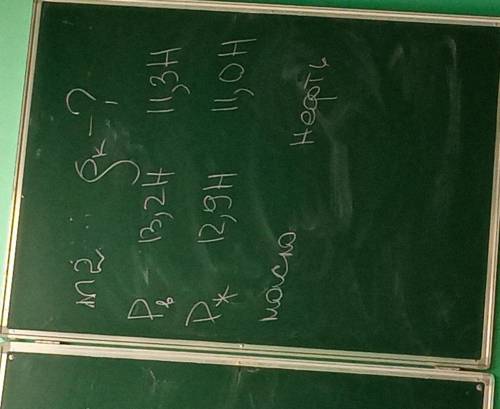 m2. ρк - ?
Pв 13,2Н 11,3Н
P* 12,9Н 11,0Н
масло нефть